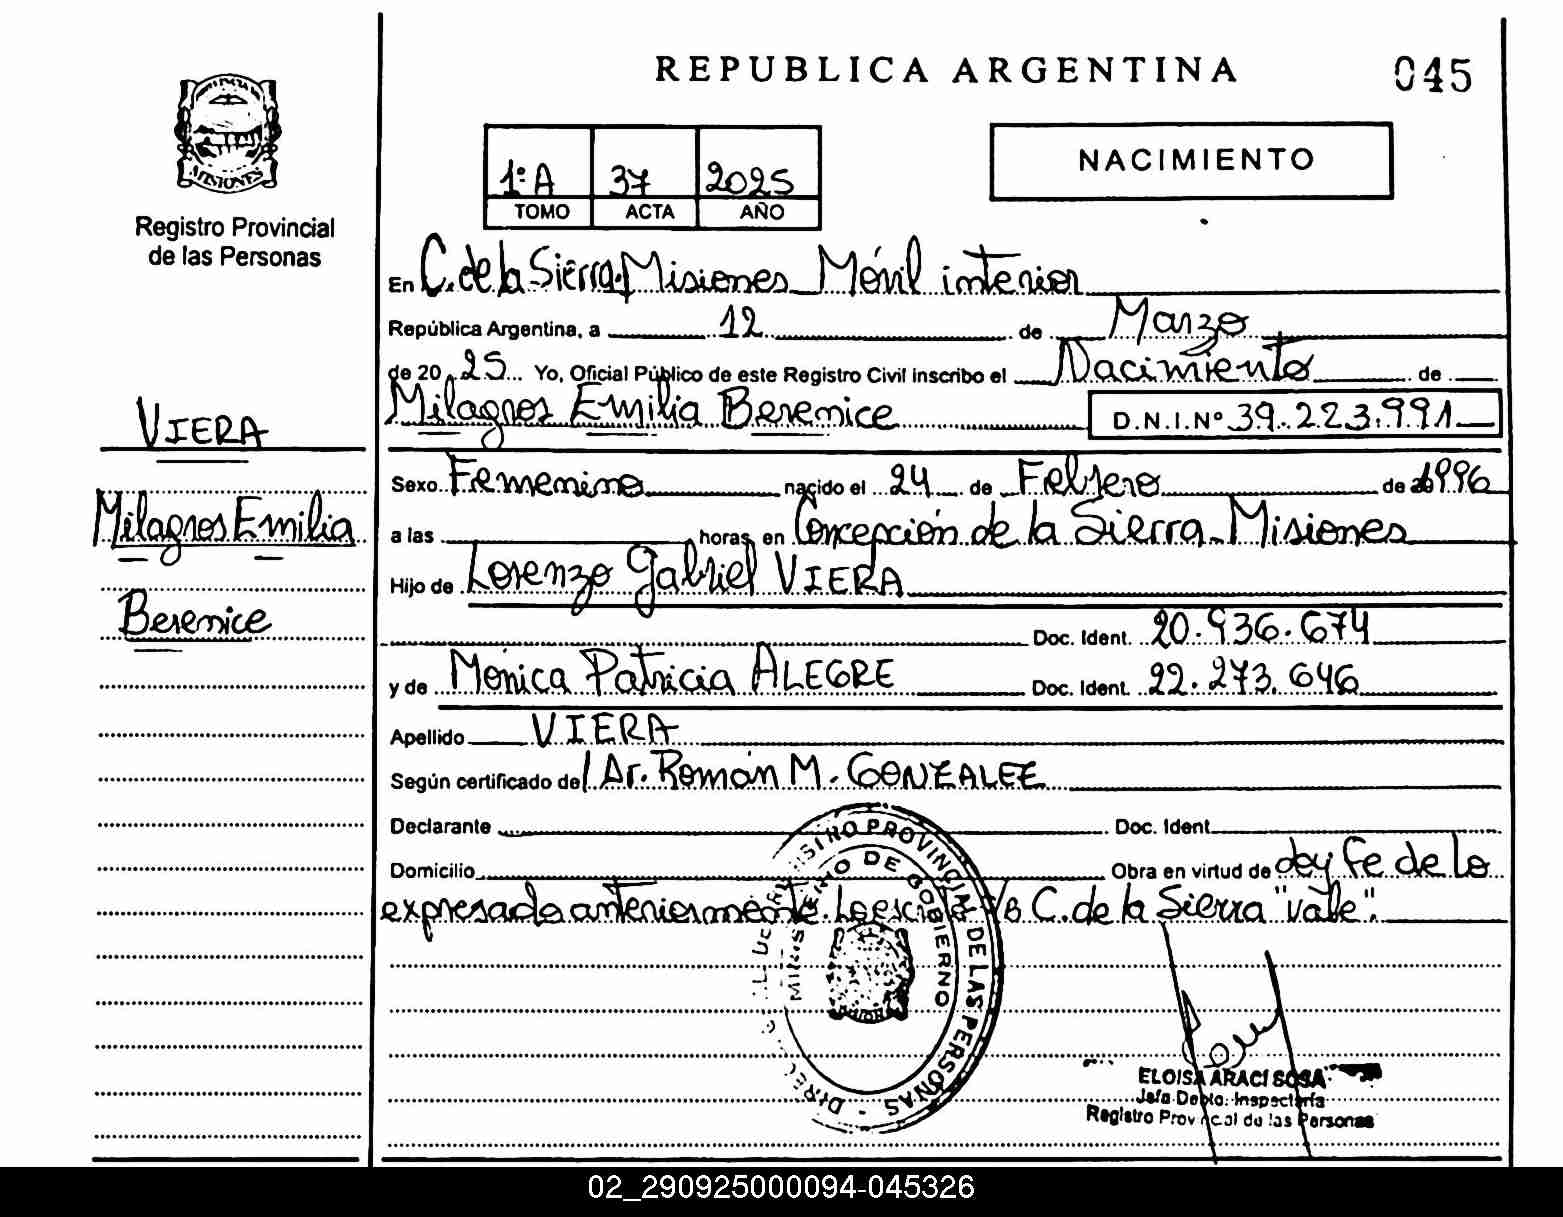 REPUBLICA ARGENTINA
045
MISIONES
Registro Provincial
de las Personas
1ª A 37 2025
TOMO ACTA AÑO
NACIMIENTO
En C. de la Sierra, Misiones Móvil interior
República Argentina, a 12 de Marzo
de 20 25 Yo, Oficial Público de este Registro Civil inscribo el Nacimiento de
Milagros Emilia Berenice D.N.I.Nº 39.223.991
VIERA
Milagros Emilia
Berenice
Sexo Femenino nacido el 24 de Febrero de 1996
a las horas en Concepción de la Sierra - Misiones
Hijo de Lorenzo Gabriel VIERA
Doc. Ident. 20.936.674
y de Mónica Patricia ALEGRE Doc. Ident. 22.273.646
Apellido VIERA
Según certificado de Dr. Román M. GONZALEZ
Declarante Doc. Ident.
Domicilio Obra en virtud de doy fe de lo
expresado anteriormente. Lo escrito S/B C. de la Sierra "vale".
REGISTRO PROVINCIAL DE LAS PERSONAS
MINISTERIO DE GOBIERNO
ELOISA ARACI SOSA
Jefa Depto. Inspectoría
Registro Provincial de las Personas
02_290925000094-045326